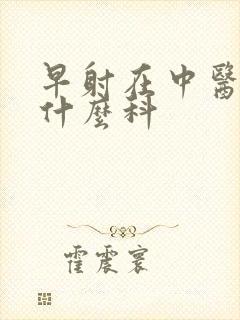 早射在中醫
什麼科
霍震寰